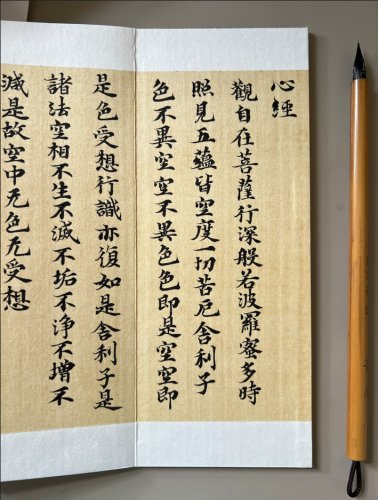 心經
觀自在菩薩行深般若波羅蜜多時
照見五蘊皆空度一切苦厄舍利子
色不異空空不異色色即是空空即
是色受想行識亦復如是舍利子是
諸法空相不生不滅不垢不淨不增不
減是故空中无色无受想